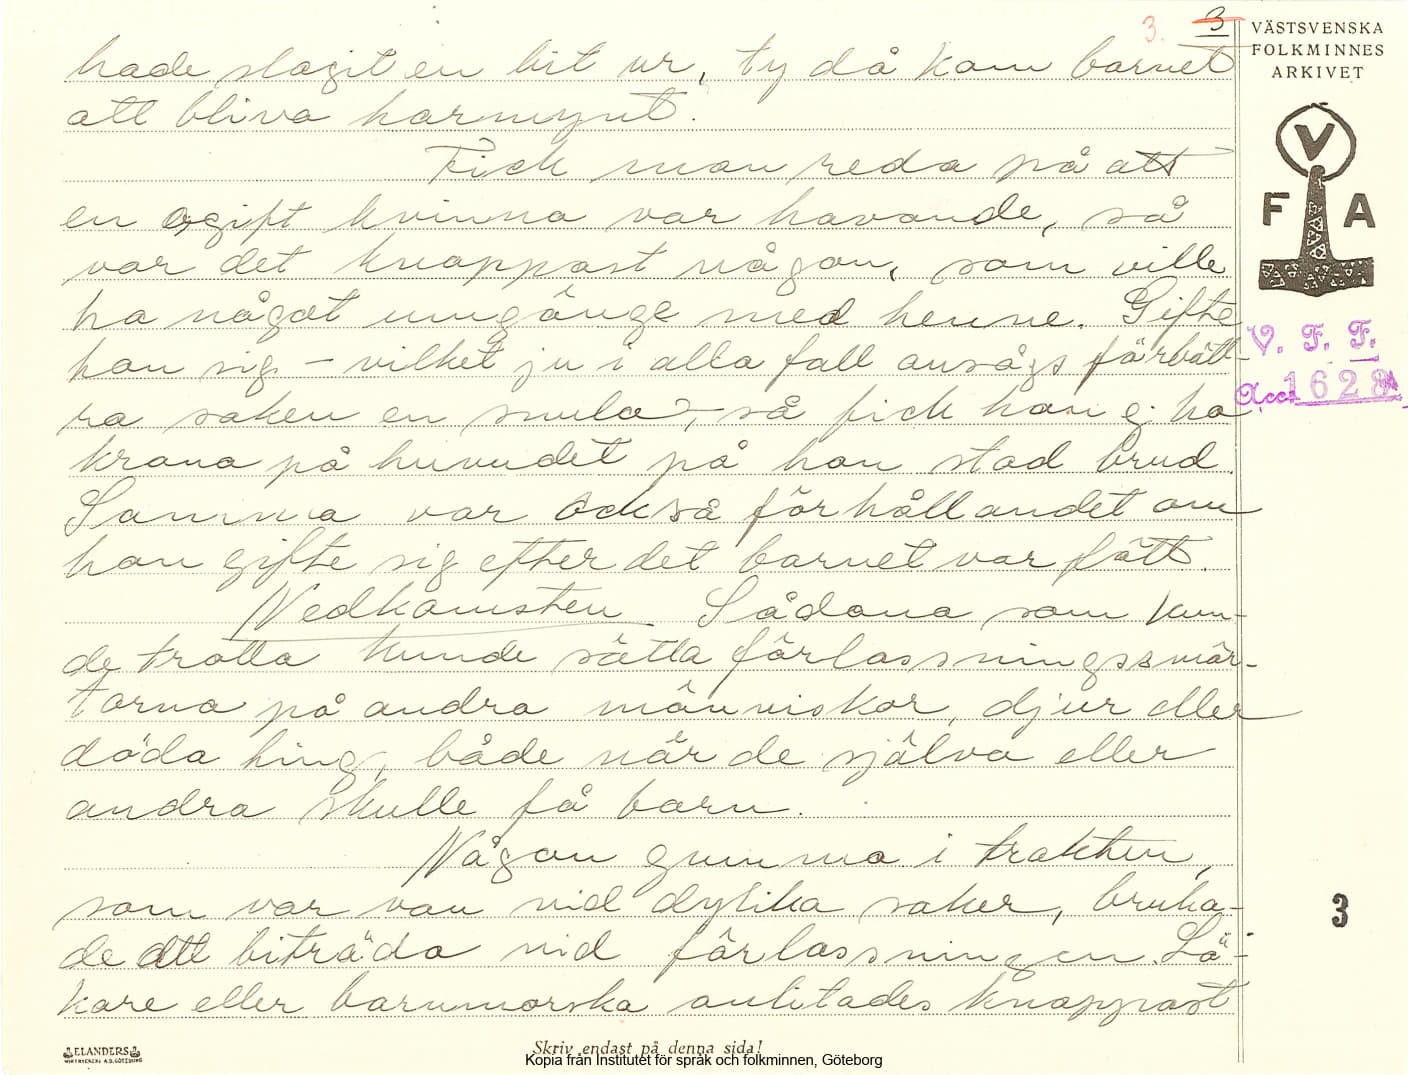 3. 3
VÄSTSVENSKA
FOLKMINNES
ARKIVET
V
F A
V. F. F.
Acc. 1628
hade slagit en bit ur, ty då kom barnet
att bliva harmynt.
Fick man reda på att
en ogift kvinna var havande, så
var det knappast någon, som ville
ha något umgänge med henne. Gifte
hon sig – vilket ju i alla fall ansågs förbätt-
ra saken en smula –, så fick hon ej ha
krona på huvudet på hon stod brud.
Samma var också förhållandet om
hon gifte sig efter det barnet var fött.
Nedkomsten Sådana som kun-
de trolla kunde sätta förlossningssmär-
torna på andra människor, djur eller
döda ting, både när de själva eller
andra skulle få barn.
Någon gumma i trakten,
som var van vid dylika saker, bruka-
de att biträda vid förlossningen. Lä-
kare eller barnmorska anlitades knappast
3
ELANDERS
Skriv endast på denna sida!
Kopia från Institutet för språk och folkminnen, Göteborg